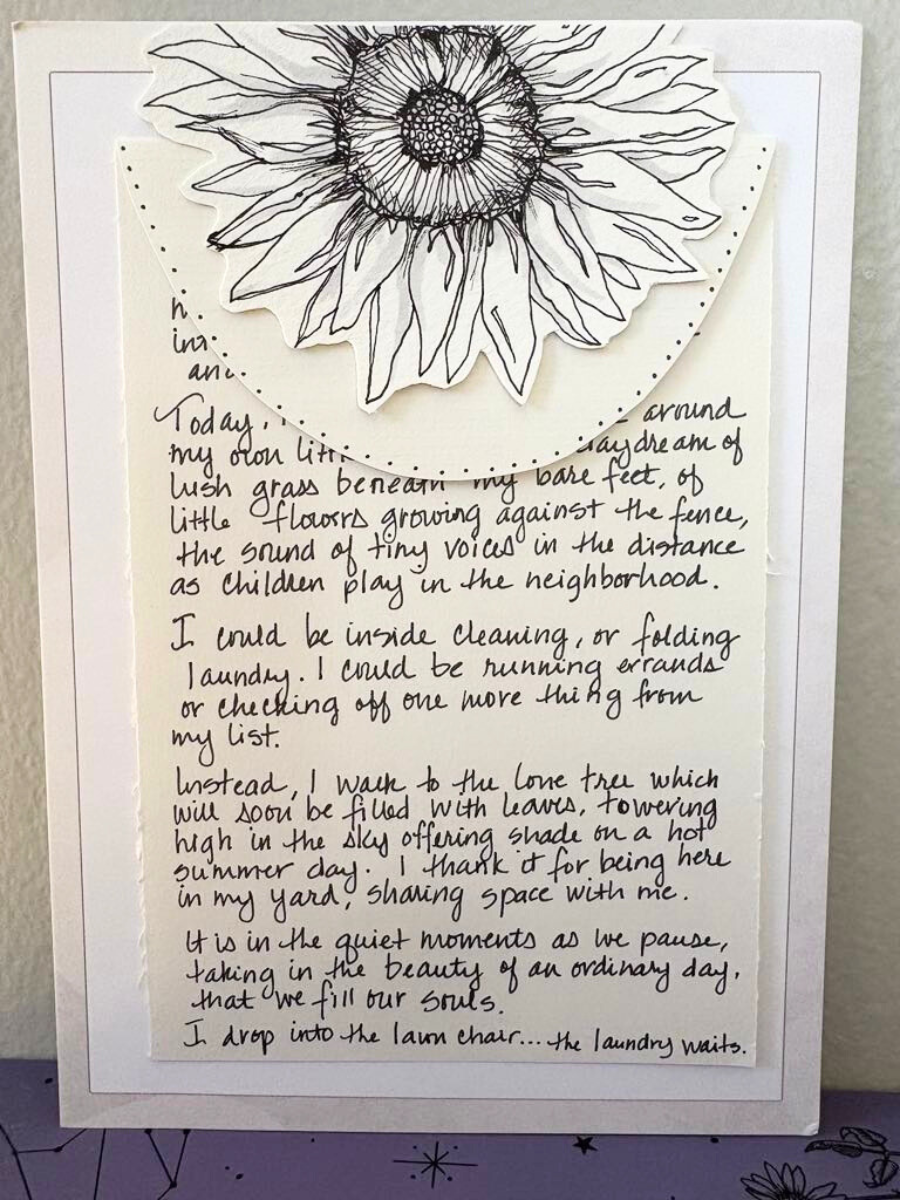 Today, around
my own daydream of
lush grass beneath my bare feet, of
little flowers growing against the fence,
the sound of tiny voices in the distance
as children play in the neighborhood.
I could be inside cleaning, or folding
laundry. I could be running errands
or checking off one more thing from
my list.
Instead, I walk to the lone tree which
will soon be filled with leaves, towering
high in the sky offering shade on a hot
summer day. I thank it for being here
in my yard, sharing space with me.
It is in the quiet moments as we pause,
taking in the beauty of an ordinary day,
that we fill our souls.
I drop into the lawn chair... the laundry waits.